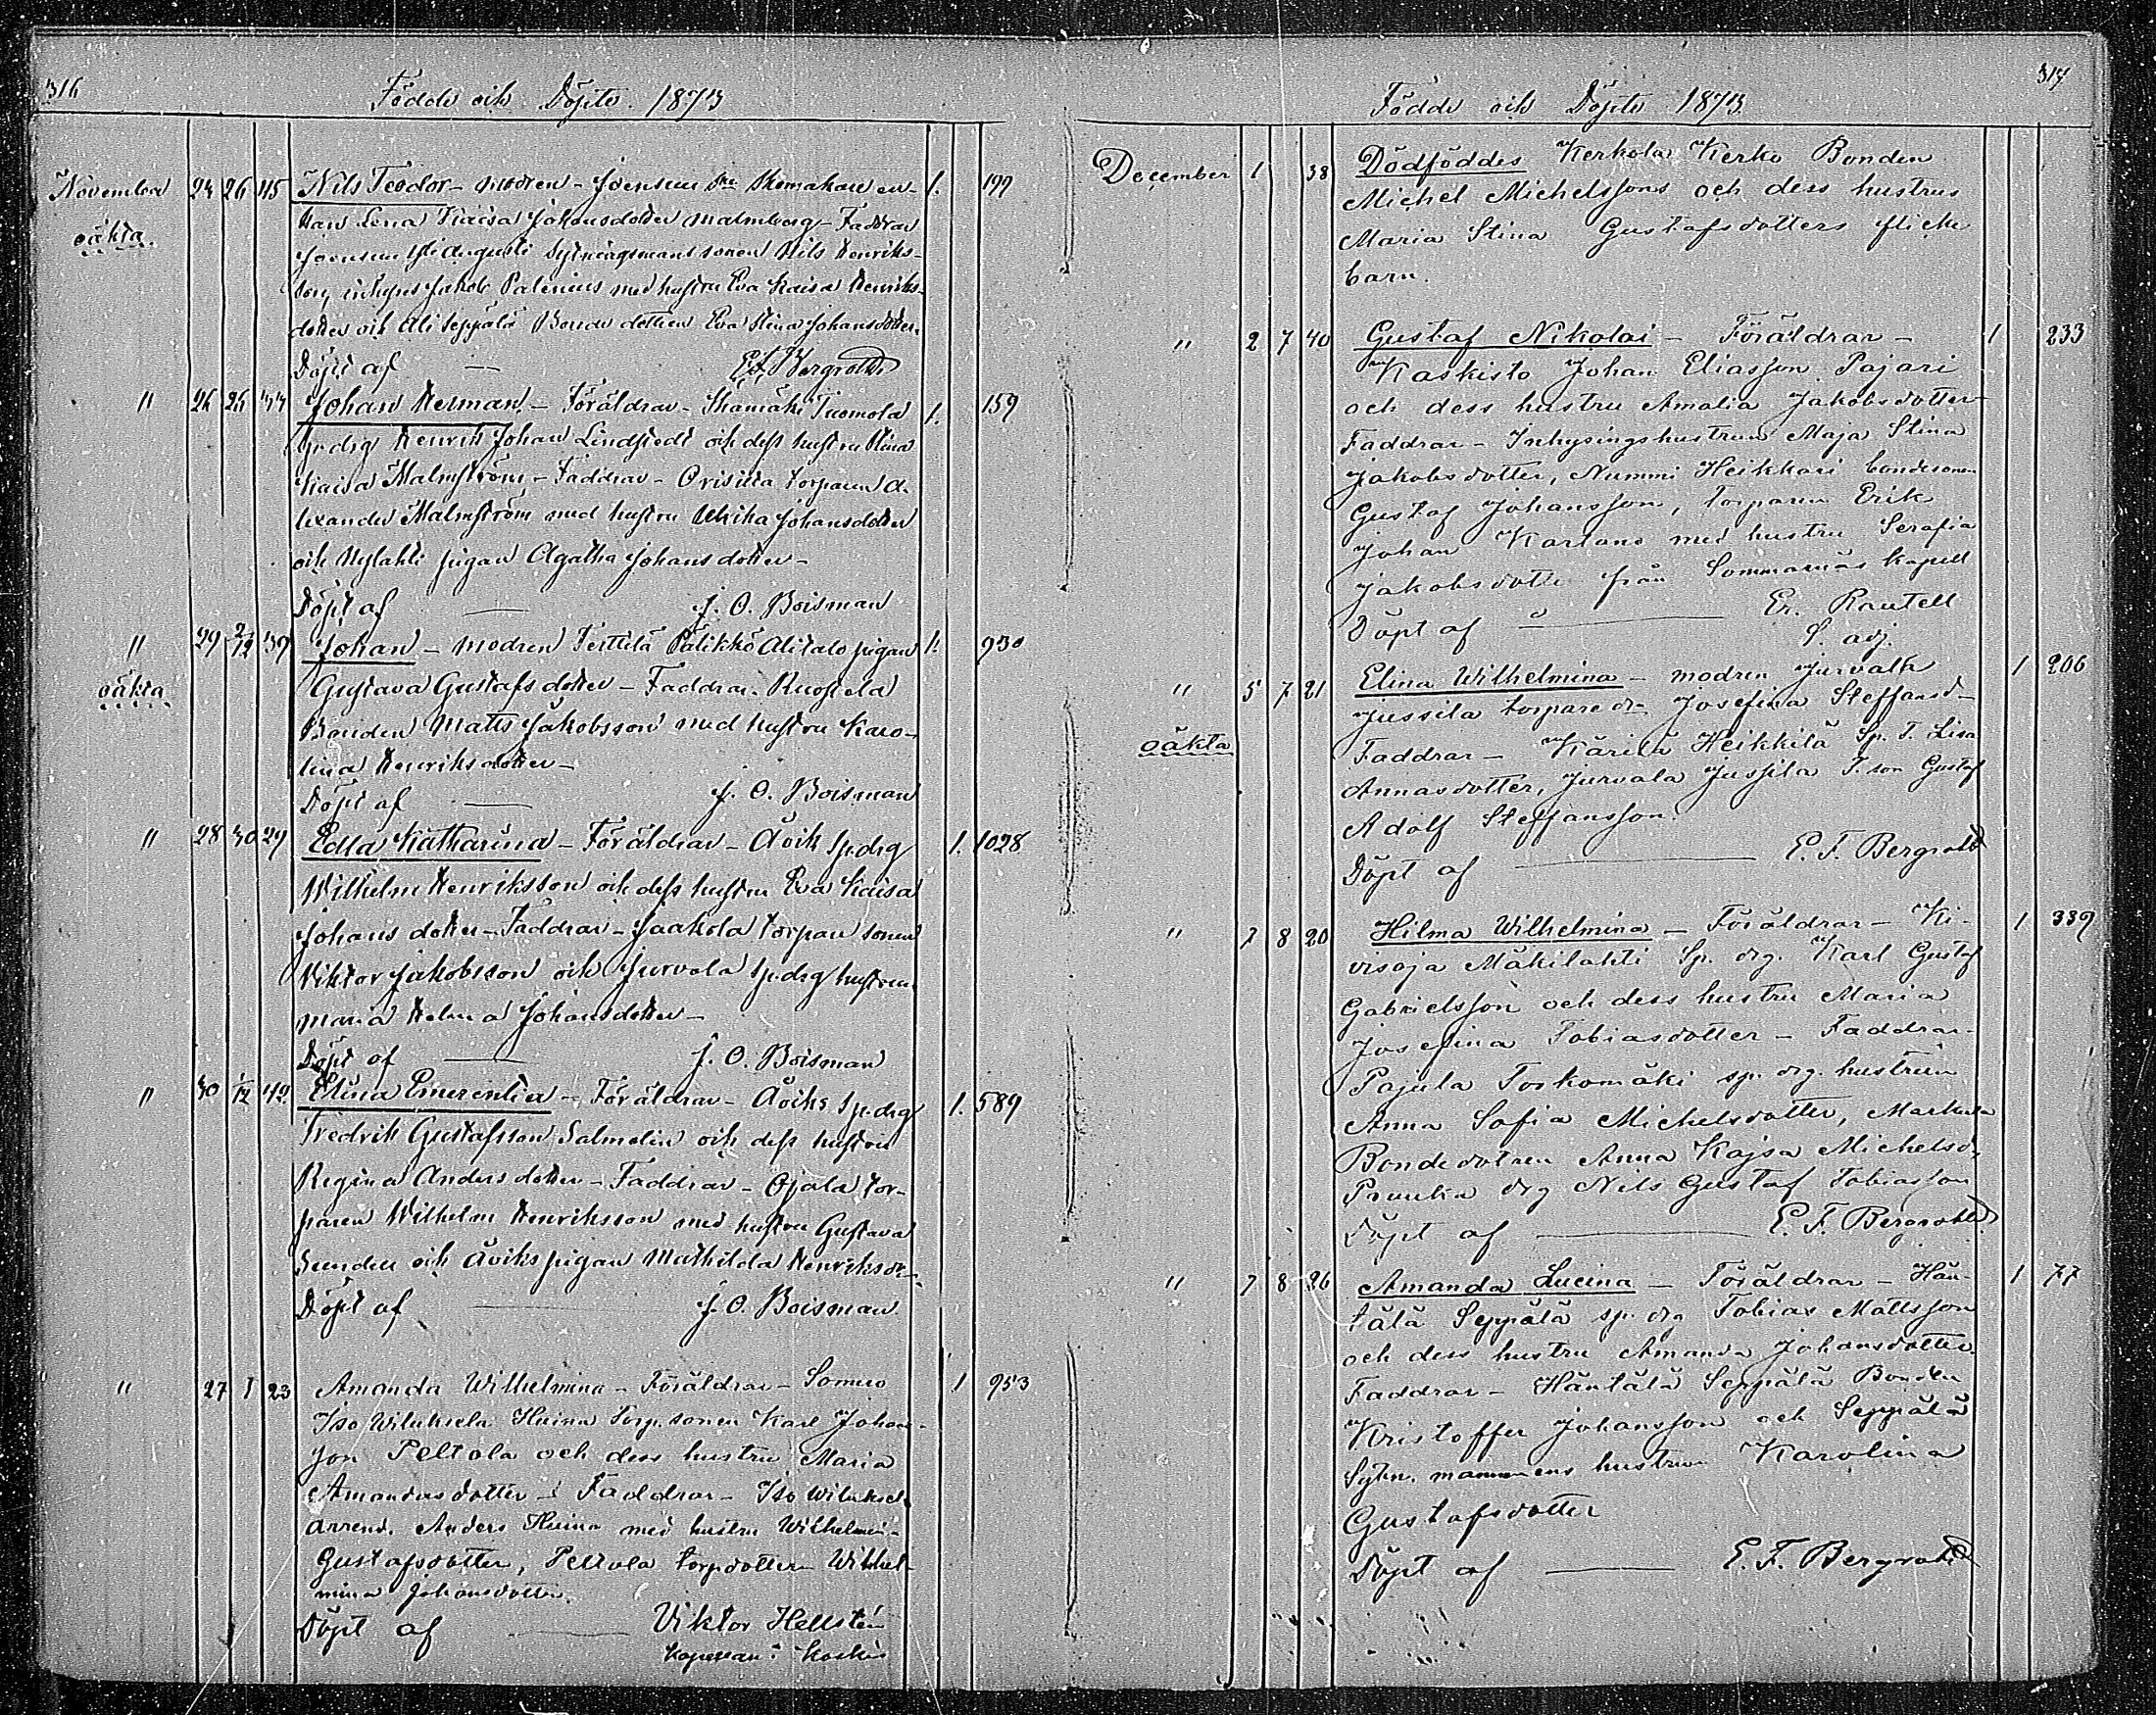 316
Födde och Döpte 1873
November 24 26 45 Nils Teodor - modren - Joensuu Skomakare en- 1. 199
oäkta. kan Lena Kaisa Johansdotter Malmberg - Faddrar
Joensuu Yli Augusti Sytningsmans sonen Nils Henriks-
son, inhyses Jakob Palenius med hustru Eva Kaisa Henriks-
dotter och Ali Seppälä Bonde dottren Eva Stina Johansdotter.
Döpt af — E.F. Bergroth
" 26 26 33 Johan Herman - Föräldrar - Tuomola 1. 159
Henrik Johan Lindstedt och dess hustru Stina
Kaisa Malmström - Faddrar - torparen A-
lexander Malmström med hustru Ulrika Johansdotter
och pigan Agatha Johansdotter -
Döpt af — J. O. Boisman
" 29 2/12 39 Johan - modren Terttilä Palikkö Alitalo pigan 1. 930
oäkta Gustava Gustafsdotter - Faddrar. Ruostela
Bonden Matts Jakobsson med hustru Karo-
lina Henriksdotter -
Döpt af — J. O. Boisman
" 28 30 29 Edla Katharina - Föräldrar - Åvik sp.drg 1. 1028
Wilhelm Henriksson och dess hustru Eva Kaisa
Johans dotter - Faddrar - Jaakola torpare sonen
Viktor Jakobsson och Jurvala sp.drg hustrun
Maria Helena Johansdotter -
Döpt af — J. O. Boisman
" 30 1/12 42 Elina Emerentia - Föräldrar - Åviks sp.drg 1. 589
Fredrik Gustafsson Salmelin och dess hustru
Regina Anders dotter - Faddrar - Ojala tor-
paren Wilhelm Henriksson med hustru Gustava
och Åviks pigan Mathilda Henriksdr -
Döpt af — J. O. Boisman
" 27 1 23 Amanda Wilhelmina - Föräldrar - Somero 1 953
Iso Wiluksela Heina torp. sonen Karl Johans-
son Peltola och dess hustru Maria
Amandusdotter - Faddrar - Iso Wiluksela
arrend. Anders Heina med hustru Wilhelmin-
Gustafsdotter, Peltola torpdottern Wilhel-
mina Johansdotter.
Döpt af — Viktor Hellstén
kapellan i Koskis
317
Födde och Döpte 1873
December 1 38 Dödföddes Kerkola Kerko Bonden
Michel Michelssons och dess hustrus
Maria Stina Gustafsdotters flicke
barn.
" 2 7 40 Gustaf Nikolai - Föräldrar - 1 233
Kaskisto Johan Eliasson Pajari
och dess hustru Amalia Jakobsdotter -
Faddrar - Inhysingshustrun Maja Stina
Jakobsdotter, Nummi Heikkari bondesonen
Gustaf Johansson, torparen Erik
Johan Karlund med hustru Serafia
Jakobsdotter från Sommarnäs kapell
Döpt af — Er. Rautell
S. adj.
" 5 7 21 Elina Wilhelmina - modren Jurvala 1 206
oäkta Jussila torpare dr. Josefina Steffansd -
Faddrar - Kärilä Heikkilä Sp. T. Lisa
Annasdotter, Jurvala Jussila T. son Gustaf
Adolf Steffansson.
Döpt af — E. F. Bergroth
" 7 8 20 Hilma Wilhelmina - Föräldrar - Ki- 1 339
visoja Mäkilahti Sp. drg. Karl Gustaf
Gabrielsson och dess hustru Maria
Josefina Tobiasdotter - Faddrar -
Pajula Torkomäki sp. drg. hustrun
Anna Sofia Michelsdotter, Markula
Bondedotren Anna Kajsa Michelsd.
drg Nils Gustaf Tobiasson
Döpt af — E. F. Bergroth
" 7 8 26 Amanda Lucina - Föräldrar - Hän- 1 77
tälä Seppälä sp. drg Tobias Mattsson
och dess hustru Amanda Johansdotter.
Faddrar - Häntälä Seppälä Bonden
Kristoffer Johansson och Seppälä
Sytn. mannens hustru Karolina
Gustafsdotter
Döpt af — E. F. Bergroth